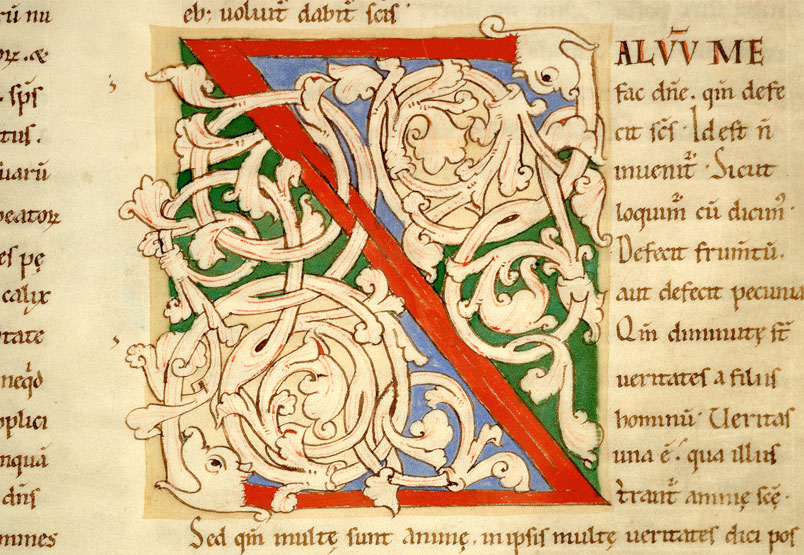 rū nu
orꝝ. &
sp̄s
tus.
uarū
beatoꝝ
es pę
calix
itate
neq̄d
plici
nquā
dn̄s
mnes
eb; uoluit̄ dabit̄ sc̄is ·
SALVV̄ ME
fac dn̄e. qm̄ defe
cit sc̄s · Id est n̄
inuenit̄ · Sicut
loquim̄ cū dicim᾽ ·
Defecit frum̄tū ·
aut defecit pecunia
Qm̄ diminutę st̄
ueritates a filiis
hominū · Ueritas
una ē · qua illus
trant̄ animę sc̄ę ·
Sed qm̄ multę sunt animę. in ipsis multę ueritates dici pos